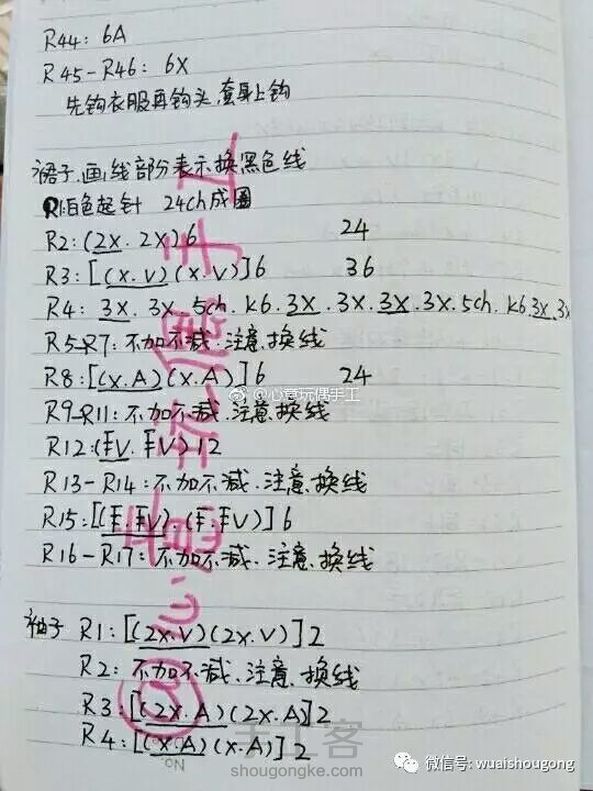 R44: 6A
R45-R46: 6X
先钩衣服再钩头,套身上钩
裙子.画线部分表示换黑色线
R1:白色起针 24ch成圈
R2:(2X.2X)6 24
R3:[(X.V)(X.V)]6 36
R4: 3X.3X.5ch.K6.3X.3X.3X.3X.5ch.K6.3X.3X
R5-R7:不加不减.注意.换线
R8:[(X.A)(X.A)]6 24
@心意玩偶手工
R9-R11:不加不减.注意.换线
R12:(FV.FV)12
R13-R14:不加不减.注意.换线
R15:[(F.FV).(F.FV)]6
R16-R17:不加不减.注意.换线
袖子 R1:[(2X.V)(2X.V)]2
R2:不加不减.注意.换线
R3:[(2X.A)(2X.A)]2
R4:[(X.A)(X.A)]2
手工客
shougongke.com
微信号: wuaishougong